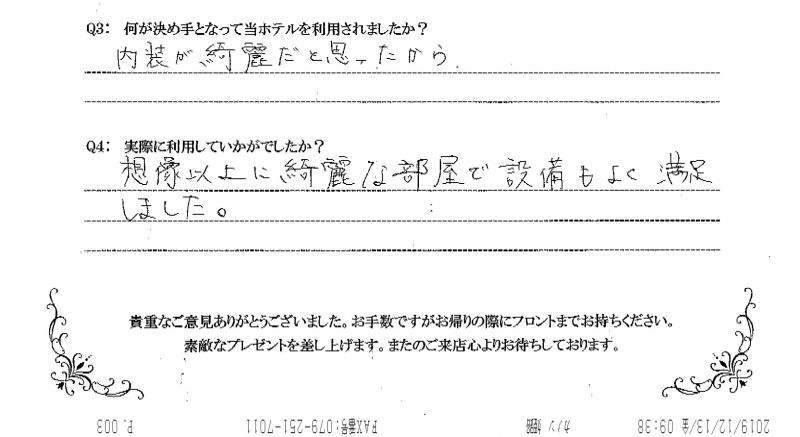 Q3： 何が決め手となって当ホテルを利用されましたか？
内装が綺麗だと思ったから
Q4： 実際に利用していかがでしたか？
想像以上に綺麗な部屋で設備もよく満足
しました。
貴重なご意見ありがとうございました。お手数ですがお帰りの際にフロントまでお持ちください。
素敵なプレゼントを差し上げます。またのご来店心よりお待ちしております。
2019/12/13/金 09:38
カノン 姫路
FAX番号:079-251-7011
P. 003